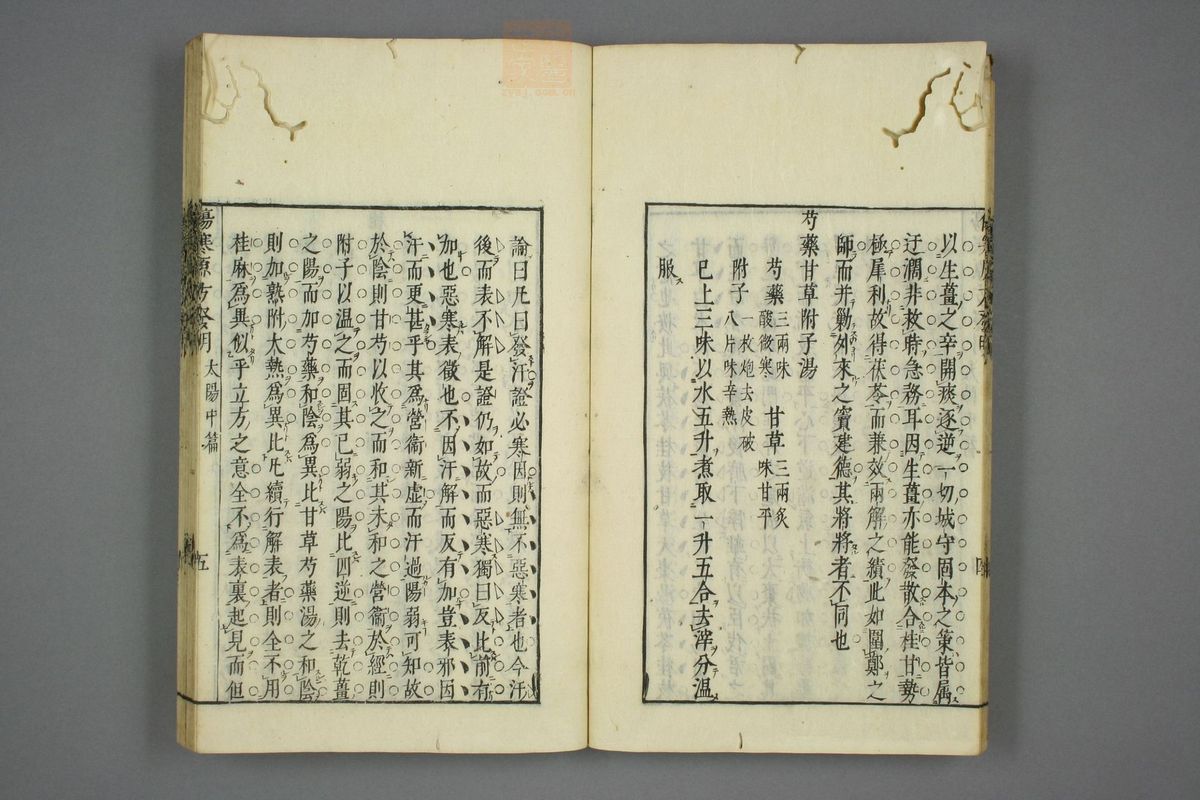 以生薑之辛開痰逐逆一切城守固本之策皆屬
迂濶非救時急務耳因生薑亦能發散合桂甘勢
極犀利故得茯苓而兼效兩解之績此如圍鄭之
師而并勦外來之竇建德其將將者不同也
芍藥甘草附子湯
芍藥三兩味酸微寒 甘草三兩炙味甘平
附子一枚炮去皮破八片味辛熱
已上三味以水五升煮取一升五合去滓分温
服
論曰凡曰發汗證必寒因則無不惡寒者也今汗
後而表不解是證仍如故而惡寒獨曰反比前有
加也惡寒表徵也不因汗解而反有加豈表邪因
汗而更甚乎其爲營衞新虚而汗過陽弱可知故
於陰則甘芍以收之而和其未和之營衞於經則
附子以温之而固其已弱之陽比四逆則去乾薑
之陽而加芍藥和陰爲異比甘草芍藥湯之和陰
則加熟附大熱爲異比凡續行解表者則全不用
桂麻爲異似乎立方之意全不爲表裏起見而但
傷寒原方發明 太陽中篇 五
zysj.com.cn